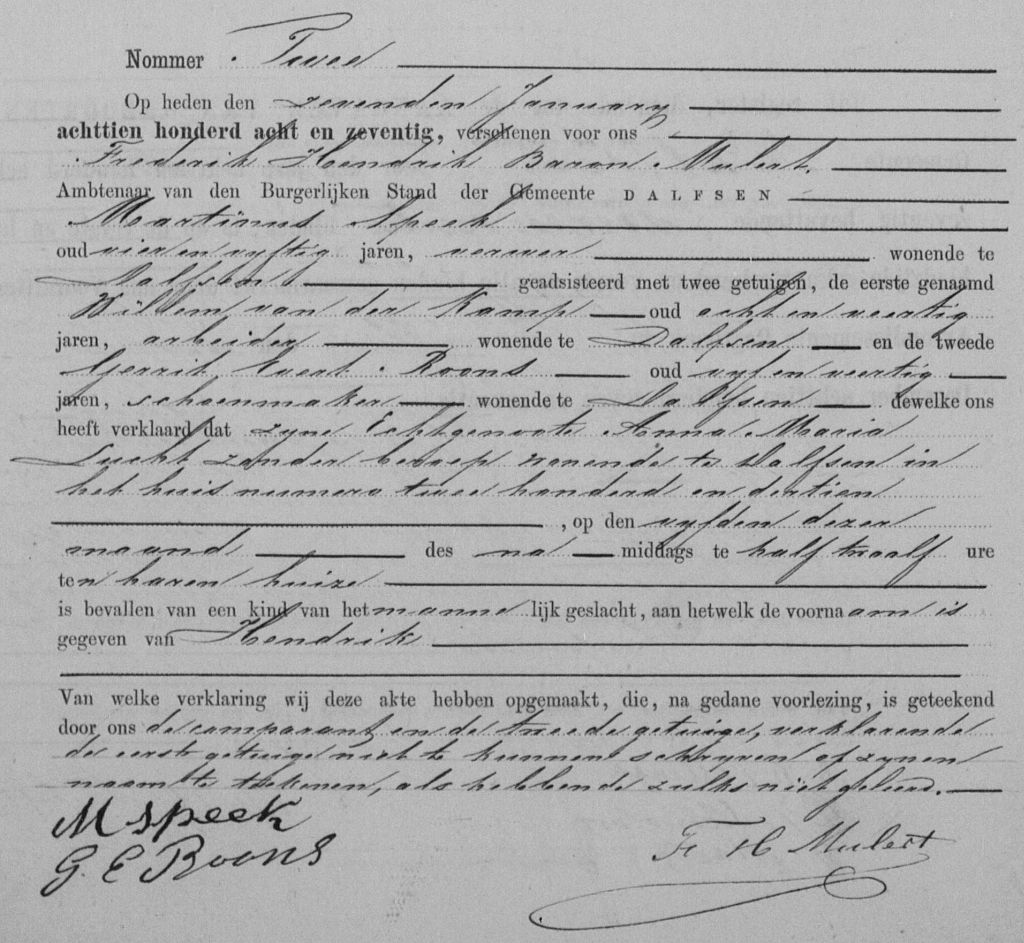 Nommer Twee
Op heden den zevenden January
achttien honderd acht en zeventig, verschenen voor ons
Frederik Hendrik Baron Mulert.
Ambtenaar van den Burgerlijken Stand der Gemeente DALFSEN
Martinus Speek
oud vier en vyftig jaren, verwer wonende te
Dalfsen geadsisteerd met twee getuigen, de eerste genaamd
Willem van der Kamp oud acht en veertig
jaren, arbeider wonende te Dalfsen en de tweede
Gerrit Evert Roons oud vyf en veertig
jaren, schoenmaker wonende te Dalfsen dewelke ons
heeft verklaard dat zyne Echtgenoote Anna Maria
Lucht zonder beroep wonende te Dalfsen in
het huis numero twee honderd en dertien
, op den vyfden dezer
maand des na middags te half twaalf ure
ten haren huize
is bevallen van een kind van het manne lijk geslacht, aan hetwelk de voornaam is
gegeven van Hendrik
Van welke verklaring wij deze akte hebben opgemaakt, die, na gedane voorlezing, is geteekend
door ons de comparant en de tweede getuige, verklarende
de eerste getuige niet te kunnen schryven of zynen
naam te teekenen, als hebbende zulks niet geleerd.
M Speek
G. E Roons
F. H Mulert